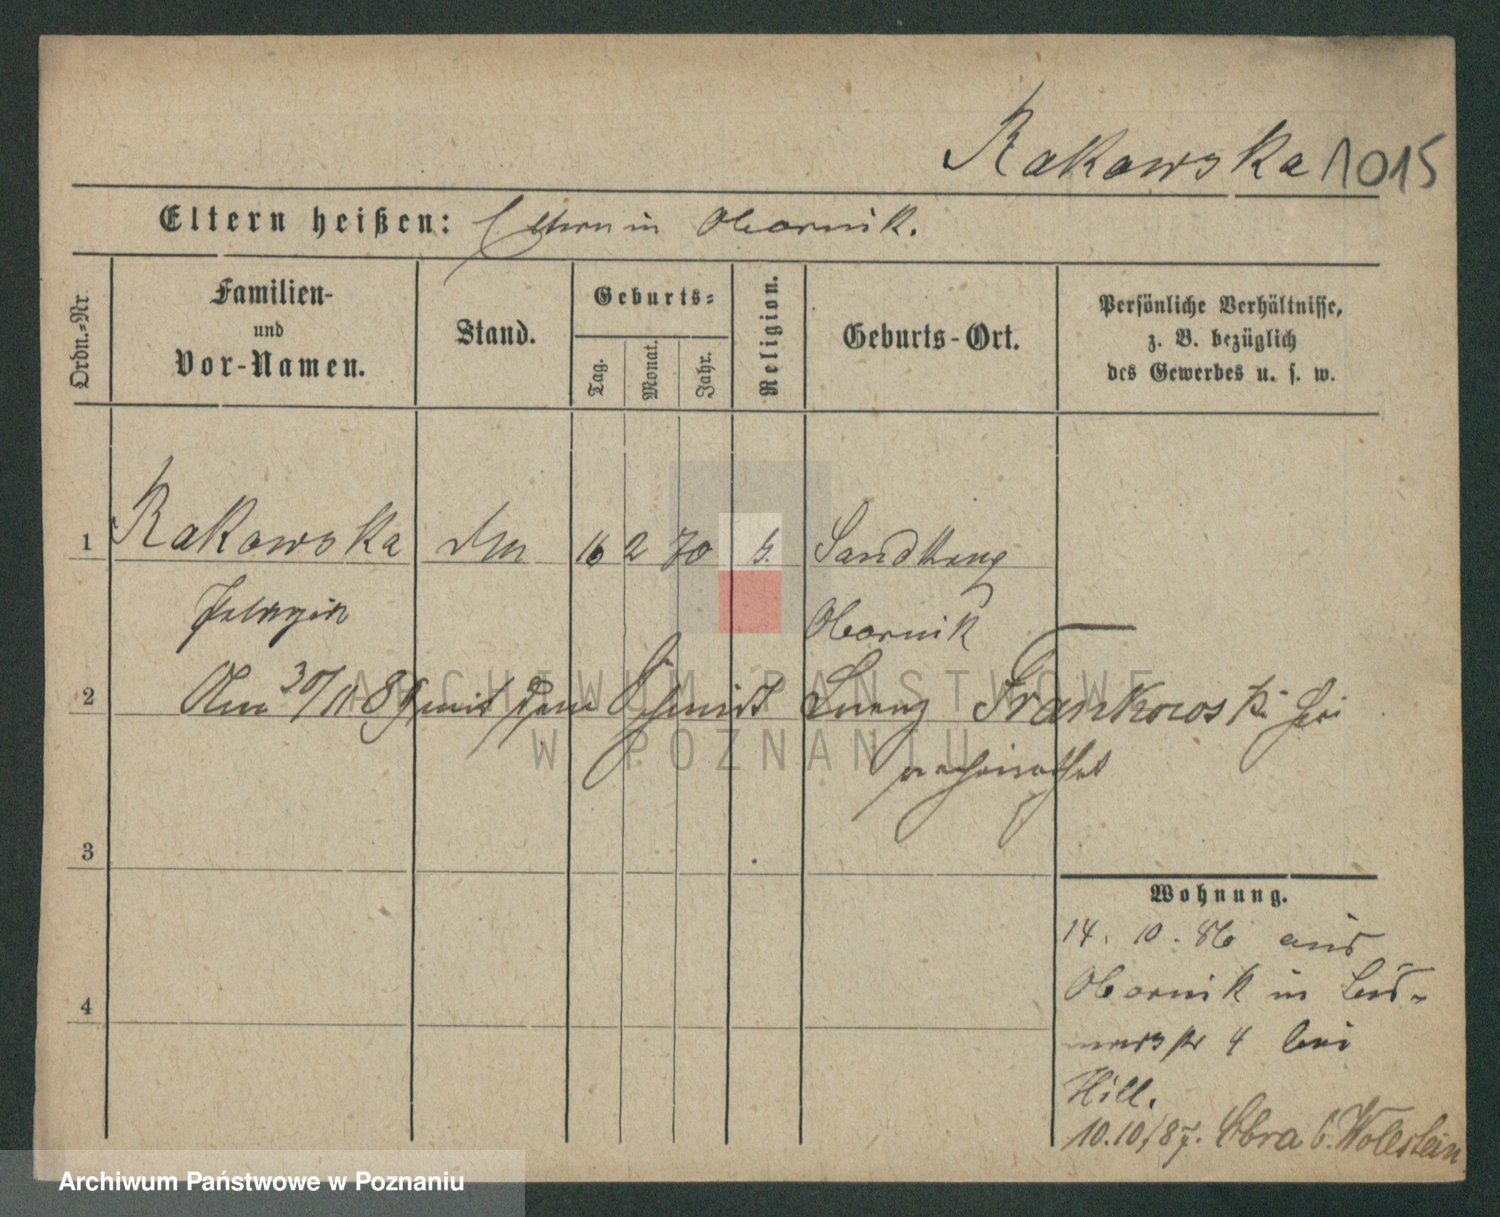 Rakowska 1015
Eltern heißen: Eltern in Obornik.
Ordn.-Nr.
Familien-
und
Vor-Namen.
Stand.
Geburts-
Tag.
Monat.
Jahr.
Religion.
Geburts-Ort.
Persönliche Verhältnisse,
z. B. bezüglich
des Gewerbes u. s. w.
1 Rakowska 16 2 70 k.
Pelagia Obornik
2 Am 30/11 89 mit dem Schmidt Franz Frankowski hier
verheirathet
3
4
Wohnung.
14. 10. 86 aus
Obornik in
4 bei
Hill.
10.10/87. Obra b. Wollstein
ARCHIWUM PAŃSTWOWE
W POZNANIU
Archiwum Państwowe w Poznaniu